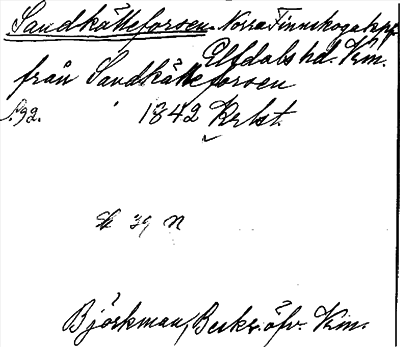 Sandkälleforsen. Norra Finnskoga kpf.
Elfdals hd. Vrm.
från Sandkälleforsen
s. 92. 1842 Krbst.
39 N
Björkman, Beskr. öfv. Vrm.